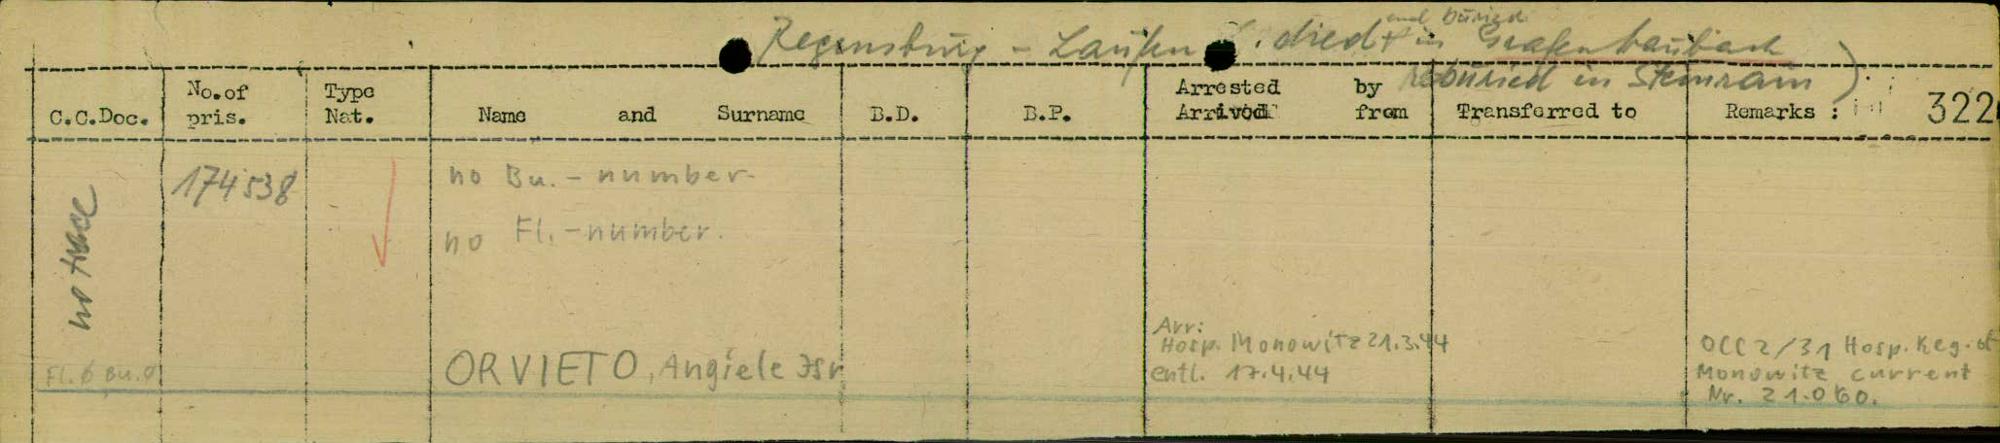 and buried
Regensburg - Laufen died + in Grafentraubach
reburied in Steinrain )
C.C.Doc. No.of pris. Type Nat. Name and Surname B.D. B.P. Arrested by Arrived from Transferred to Remarks : 322
no trace 174538 no Bu. - number.
no Fl. - number.
Fl. ø Bu. ø ORVIETO, Angiele Isr
Arr:
Hosp. Monowitz 21.3.44
entl. 17.4.44
OCC 2/31 Hosp. Reg. of
Monowitz current
Nr. 21.060.